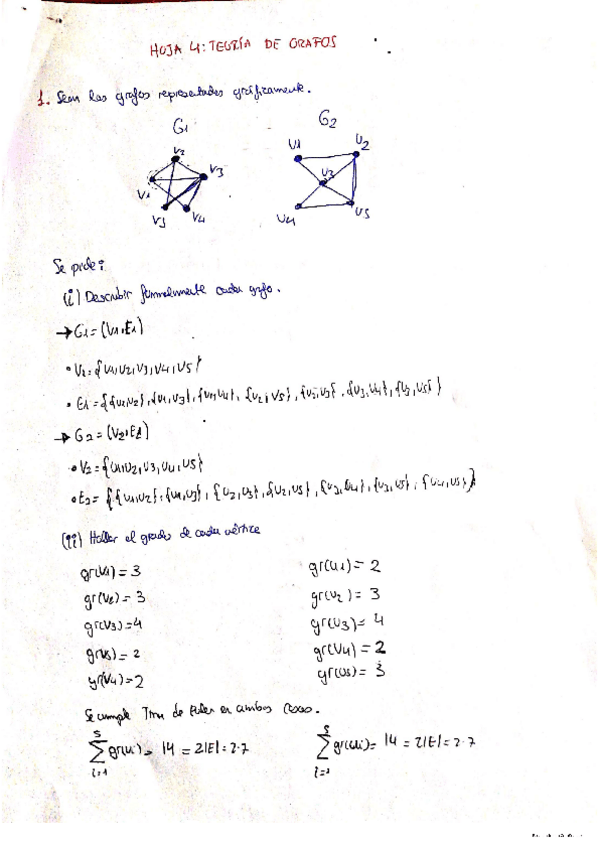 HOJA 4: TEORÍA DE GRAFOS
1. Sean los grafos representados gráficamente.
G1
G2
V2
V3
V1
V3
V4
U1
U2
U3
U4
U5
Se pide:
(i) Describir formalmente cada grafo.
→ G1 = (V1, E1)
• V1 = {v1, v2, v3, v4, v5}
• E1 = {{v1,v2}, {v1,v3}, {v1,v4}, {v2,v5}, {v2,v3}, {v3,v4}, {v3,v5}}
→ G2 = (V2, E2)
• V2 = {u1, u2, u3, u4, u5}
• E2 = {{u1,u2}, {u1,u3}, {u2,u3}, {u2,u5}, {u3,u4}, {u3,u5}, {u4,u5}}
(ii) Hallar el grado de cada vértice
gr(v1) = 3
gr(v2) = 3
gr(v3) = 4
gr(v5) = 2
gr(v4) = 2
gr(u1) = 2
gr(u2) = 3
gr(u3) = 4
gr(u4) = 2
gr(u5) = 3
Se cumple Tma de Euler en ambos casos.
5 ∑ i=1 gr(vi) = 14 = 2|E| = 2·7
5 ∑ i=1 gr(ui) = 14 = 2|E| = 2·7